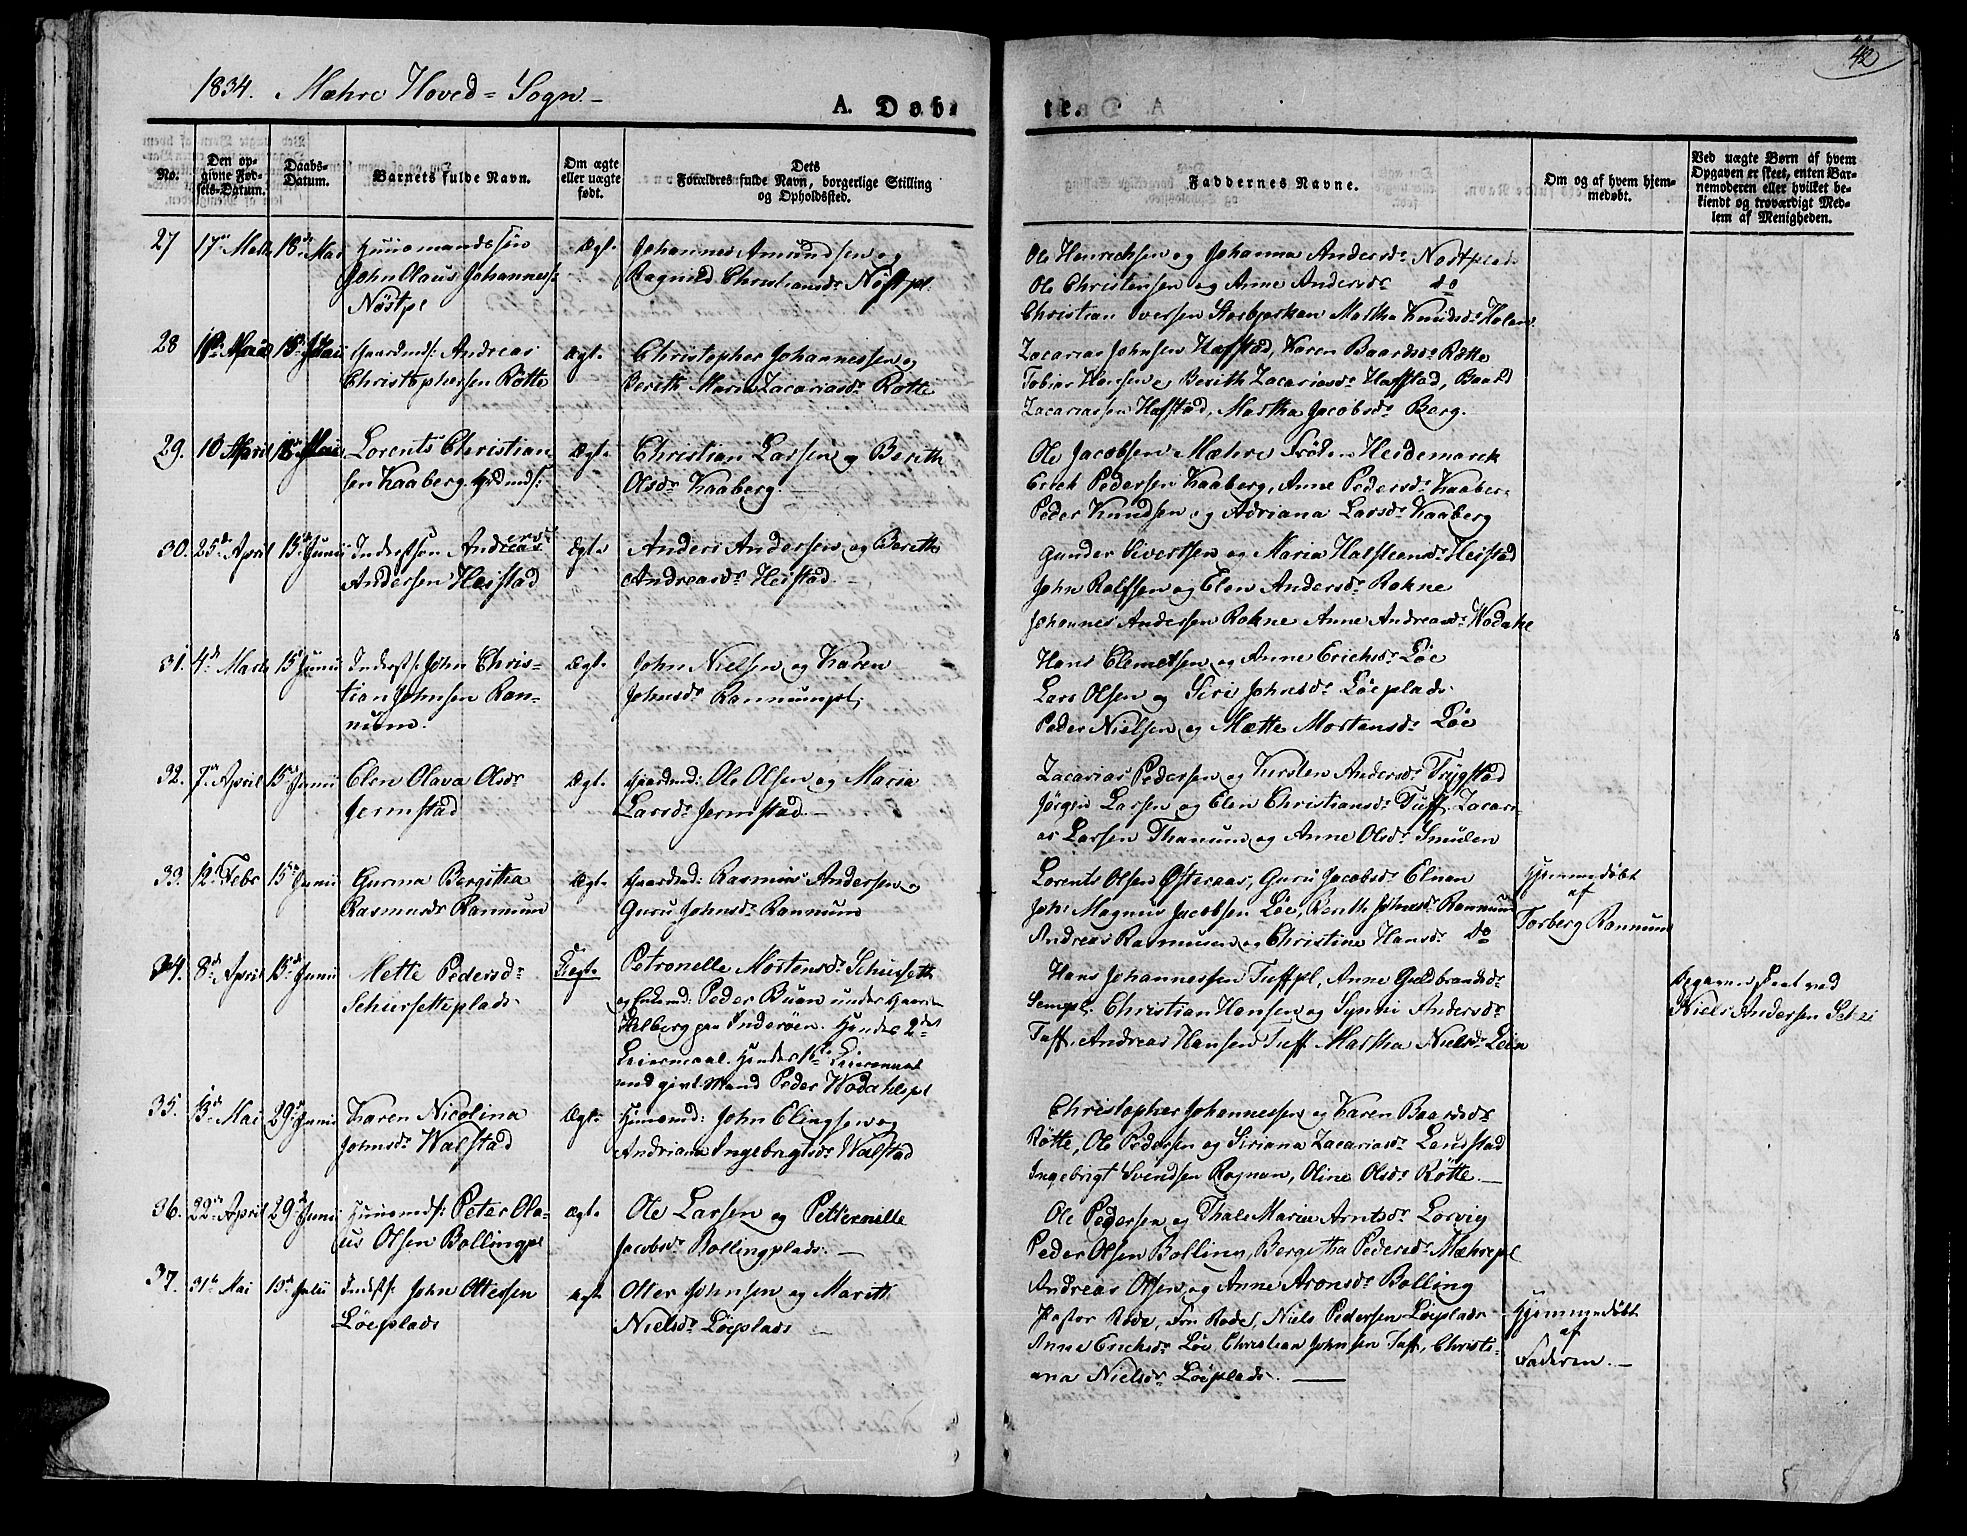 1834. Mæhre Hoved=Sogn
42
A. Døb
te.
No.
Den op-
givne Fød-
sels-Datum.
Daabs-
Datum.
Barnets fulde Navn.
Om ægte
eller uægte
født.
Dets
Forældres fulde Navn, borgerlige Stilling
og Opholdssted.
Faddernes Navne.
Om og af hvem hjem-
medøbt.
Ved uægte Børn af hvem
Opgaven er skeet, enten Bar-
nemoderen eller hvilket be-
kiendt og troværdigt Med-
lem af Menigheden.
27 17de Marts 18de Mai Huusmandssøn
John Olaus Johannes:
Nöstpl
Ægt.
Johannes Amundsen og
Ragnild Christiansdr Nöstpl.
Ole Henrichsen og Johanna Andersdr Nostplads
Ole Christensen og Anne Andersdr do
Christian Iversen Storbjorken Martha Knudsdr Holem
28 18de Mai Gaardmds: Andreas
Christophersen Rötte
Ægt.
Christopher Johannessen og
Berith Maria Zacariasdr Rotte
Zacarias Johnsen Hafstad, Karen Baardsdr Rötte
Tobias Hansen, Berith Zacariasdr Hafstad, Baard
Zacariassen Hafstad, Martha Jacobsdr Berg.
29. 10 April 18de Mai Lorents Christian-
sen Kaaberg. grdmds:
Ægt.
Christian Larsen og Berith
Olsdr Kaaberg.
Ole Jacobsen Mæhre Fröken Heidemarck
Erich Pedersen Kaaberg, Anne Pedersdr Kaaberg
Peder Knudsen og Adriana Larsdr Kaaberg
30. 25de April 15de Junii Inderstsøn Andreas
Andersen Heistad
Ægte
Anders Andersen og Berith
Andreasdr Heistad.
Gunder Sivertsen og Maria Halsteensdr Heistad
John Rolfsen og Elen Andersdr Rokne
Johannes Andersen Rokne Anne Andreasdr Wodahl
31. 4de Marts 15de Junii Inderst: John Chris-
tian Johnsen Ran-
num.
Ægt.
John Nielsen og Karen
Johnsdr Rannumpl.
Hans Clemetsen og Anne Erichsdr Löe
Lars Olsen og Siri Johnsdr Löeplads
Peder Nielsen og Mætte Mortensdr Löe
32. 7de April 15de Junii Elen Olava Olsdr
Jermstad
Ægt.
Gaardmd: Ole Olsen og Maria
Larsdr Jermstad
Zacarias Pedersen og Kirsten Andersdr Trÿgstad
Jörgen Larsen og Elen Christiansdr Tuff. Zacari-
as Larsen Thanum og Anne Olsdr Smulen
33. 12 Febr 15de Junii Gurina Bergitha
Rasmusdr Rannum
Ægt.
Gaardmd: Rasmus Andersen og
Guru Johnsdr Rannum
Lorents Olsen Österaas, Guru Jacobsdr Elnan
Joh: Magnus Jacobsen Löe, Berith Johnsdr Rannum
Andreas Rasmusen og Christine Hansdr do
Hjemmedöbt
af
Torberg Rannum
34. 8de April 15de Junii Mette Pedersdr
Schiersetteplads
Uægt.
Petronelle Mortensdr Schierseth
og Enkemd: Peder Buan under Gaard
Helberg paa Inderöen. Hendes 2det
Leiermaal. Hendes 1ste Leiermaal
med givt Mand Peder Wodahlspl
Hans Johannessen Tuffpl, Anne Guldbrandsdr
Sempl. Christian Hansen og Synnie Andersdr
Tuff. Andreas Hansen Tuff Martha Nielsdr Leira
Opgaven skeet ved
Niels Andersen
35. 13de Mai 29de Junii Karen Nicolina
Johnsdr Walstad
Ægt.
Huusmd: John Elingsen og
Andriana Ingebrigtsdr Walstad
Christopher Johannessen og Karen Baardsdr
Rötte, Ole Pedersen og Siriana Zacariasdr Leusstad
Ingebrigt Svendsen Rognan, Oline Olsdr Rötte.
36. 22de April 29de Junii Huusmds: Peter Ola-
us Olsen Bollingpl
Ægt.
Ole Larsen og Petternille
Jacobsdr Bollingplads.
Ole Pedersen og Thale Maria Arntsdr Lorvig
Peder Olsen Bolling, Bergitha Pedersdr Mæhrepl
Andreas Olsen og Anne Aronsdr Bolling
37. 31te Mai 19de Julii Indsts: John Ottessen
Löeplads
Ægt.
Otter Johnsen og Marith
Nielsdr Löeplads
Pastor Rode, Fru Rode, Niels Pedersen Löeplads
Anne Erichsdr Löe Christian Johnsen Tuff, Christi-
ana Nielsdr Löeplads.
Hjemmedöbt
af
Faderen.